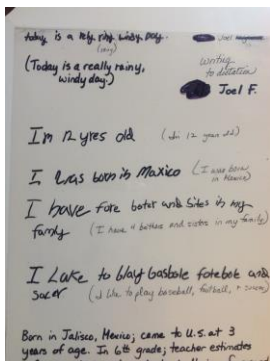 today is a rily riny windy day.
(rainy)
(Today is a really rainy,
windy day.)
writing
to dictation
Joel F.
I'm 12 yres old (I'm 12 years old)
I Was born is Maxico (I was born
in Mexico)
I have fore botet and Sites is my
family (I have 4 brothers and sisters in my family)
I Lake to blay basbole fotebot and
socer (I like to play baseball, football, + soccer)
Born in Jalisco, Mexico; came to U.S. at 3
years of age. In 6th grade; teacher estimates